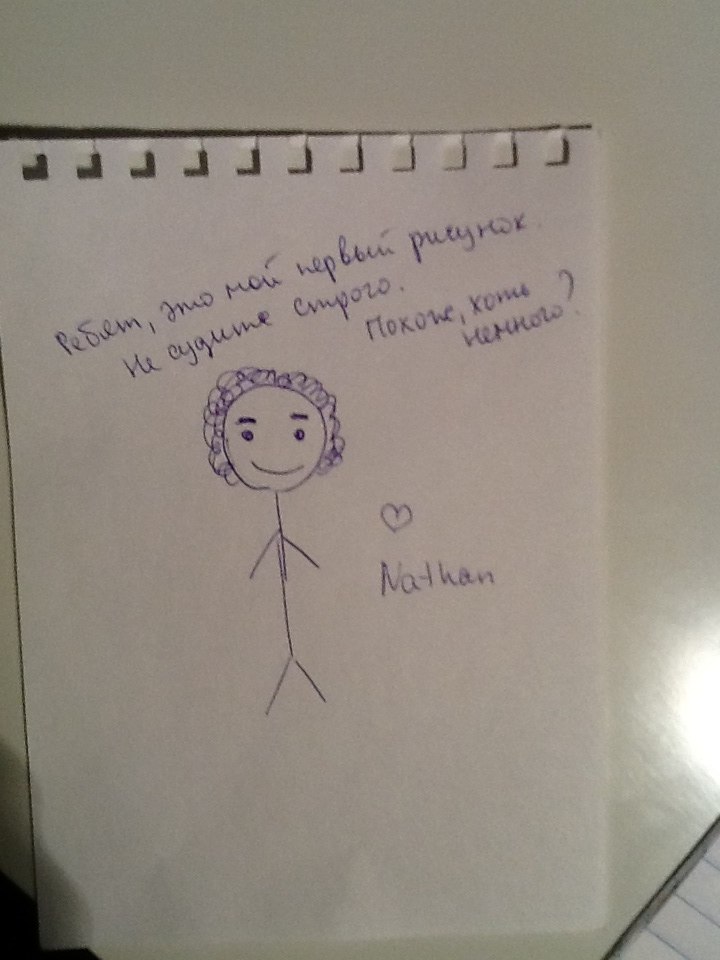 Ребят, это мой первый рисунок.
Не судите строго.
Похоже, хоть
немного?
Nathan